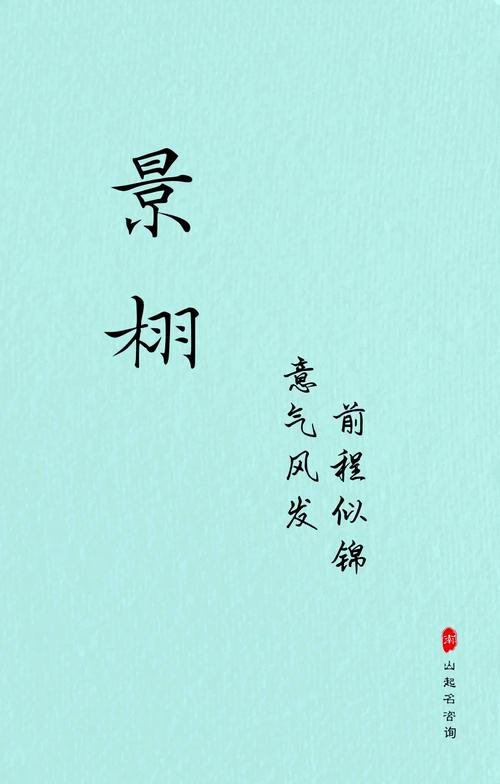 景栩
意气风发
前程似锦
南山起名咨询